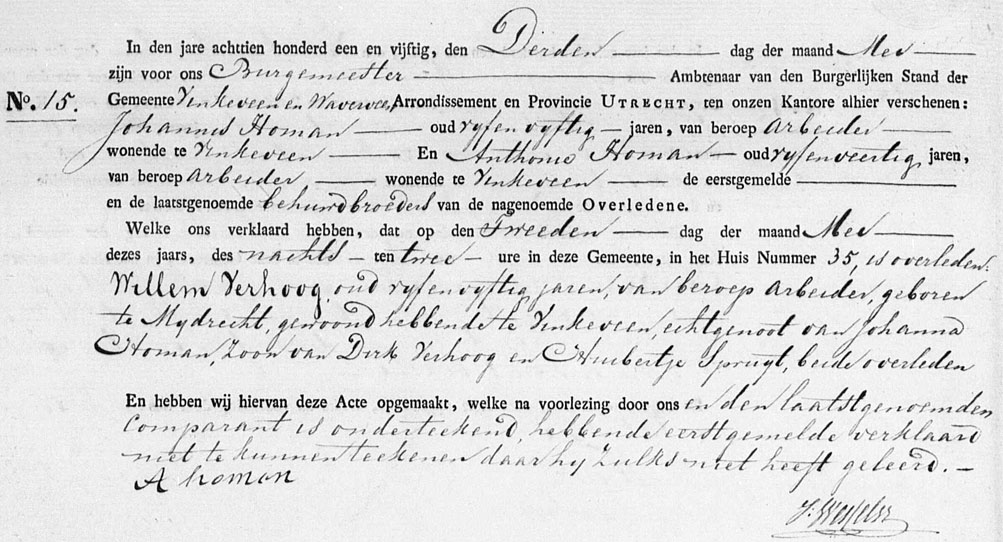 In den jare achttien honderd een en vijftig, den Derden dag der maand Mei
zijn voor ons Burgemeester Ambtenaar van den Burgerlijken Stand der
No. 15. Gemeente Vinkeveen en Waverveen, Arrondissement en Provincie UTRECHT, ten onzen Kantore alhier verschenen:
Johannis Homan oud vyfenvyftig jaren, van beroep arbeider
wonende te Vinkeveen En Anthonie Homan oud vyfenveertig jaren,
van beroep arbeider wonende te Vinkeveen de eerstgemelde
en de laatstgenoemde behuwdbroeders van de nagenoemde Overledene.
Welke ons verklaard hebben, dat op den Tweeden dag der maand Mei
dezes jaars, des nachts ten twee ure in deze Gemeente, in het Huis Nummer 35, is overleden:
Willem Verhoog, oud vyfenvyftig jaren, van beroep arbeider, geboren
te Mydrecht, gewoond hebbende te Vinkeveen, echtgenoot van Johanna
Homan, Zoon van Dirk Verhoog en Huibertje Spruyt, beide overleden
En hebben wij hiervan deze Acte opgemaakt, welke na voorlezing door ons en den laatstgenoemden
Comparant is onderteekend, hebbende eerstgemelde verklaard
niet te kunnen teekenen daar hy zulks niet heeft geleerd. —
A homan